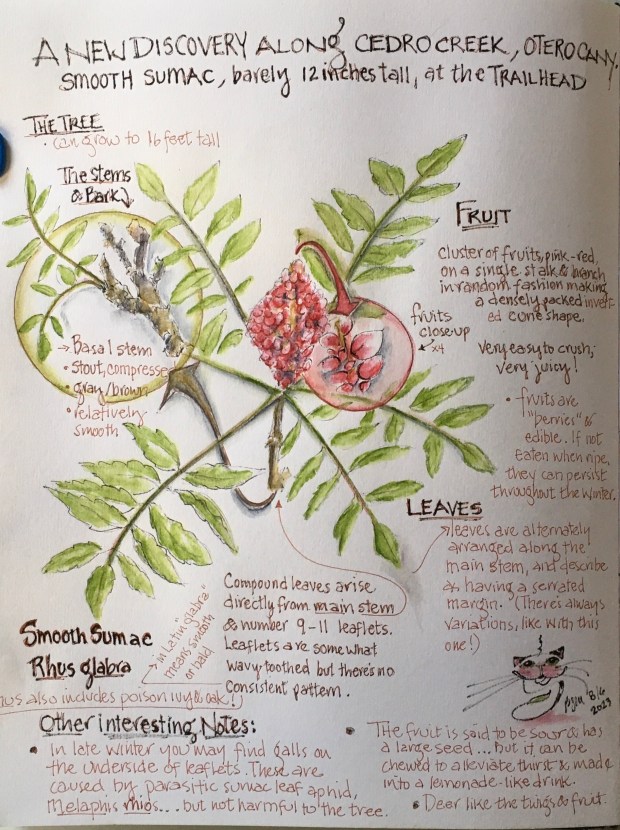 A NEW DISCOVERY ALONG CEDRO CREEK, OTERO CANY.
SMOOTH SUMAC, barely 12 inches tall, at the TRAILHEAD
THE TREE
• can grow to 16 feet tall
The Stems
& Bark
→ Basal stem
• stout, compresse
• gray/brown
• relatively
smooth
FRUIT
cluster of fruits, pink-red,
on a single stalk & branch
in random fashion making
a densely packed invert-
ed cone shape.
fruits
close-up
x4
Very easy to crush,
very juicy!
• fruits are
"berries" &
edible. If not
eaten when ripe,
they can persist
throughout the winter.
LEAVES
leaves are alternately
arranged along the
main stem, and describe
as having a serrated
margin. (There's always
variations, like with this
one!)
Compound leaves arise
directly from main stem
& number 9-11 leaflets.
Leaflets are some what
wavy toothed but there's no
consistent pattern.
Smooth Sumac
Rhus glabra
→ in Latin "glabra"
means smooth
or bald
us also includes poison ivy & oak!
8/6
2023
Other interesting Notes:
• In late winter you may find galls on
the underside of leaflets. These are
caused by parasitic sumac leaf aphid,
Melaphis rhios... but not harmful to the tree.
• The fruit is said to be sour & has
a large seed... but it can be
chewed to alleviate thirst & made
into a lemonade-like drink.
• Deer like the twigs & fruit.